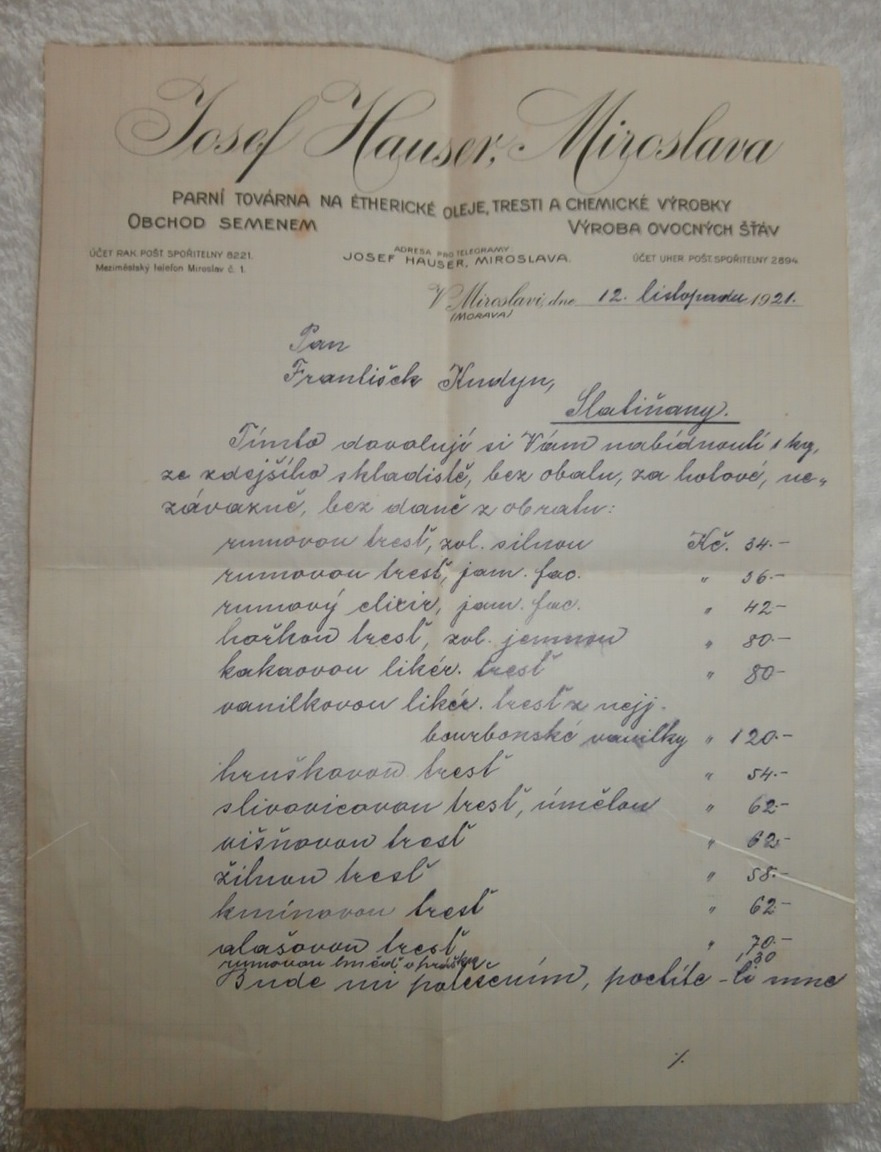 Josef Hauser, Miroslava
PARNÍ TOVÁRNA NA ÉTHERICKÉ OLEJE, TRESTI A CHEMICKÉ VÝROBKY
OBCHOD SEMENEM VÝROBA OVOCNÝCH ŠŤÁV
ÚČET RAK. POŠT. SPOŘITELNY 8221. ADRESA PRO TELEGRAMY: ÚČET UHER. POŠT. SPOŘITELNY 2894.
Meziměstský telefon Miroslav č. 1. JOSEF HAUSER, MIROSLAVA.
V Miroslavi, dne 12. listopadu 1921.
(MORAVA)
Pan
František Kudyn,
Slatiňany.
Tímto dovoluji si Vám nabídnouti 1 kg,
ze zdejšího skladiště, bez obalu, za hotové, ne-
závazně, bez daně z obratu:
rumovou tresť, zvl. silnou Kč. 34.-
rumovou tresť, jam. fac. " 36.-
rumový elixir, jam. fac. " 42.-
hořkou tresť, zvl. jemnou " 80.-
kakaovou likér. tresť " 80.-
vanilkovou likér. tresť z nejj.
bourbonské vanilky " 120.-
hruškovou tresť " 54.-
slivovicovou tresť, umělou " 62.-
višňovou tresť " 62.-
žitnou tresť " 58.-
kmínovou tresť " 62.-
alašovou tresť " 70.-
rumovou hněď v prášku 130
Bude mi potěšením, poctíte-li mne
./.